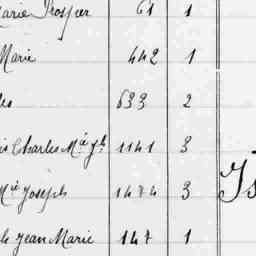 Marie Prosper 61 1
Marie 442 1
es 633 2
is Charles M.ie Jh 1141 3
M.ie Joseph 1474 3
Jean Marie 147 1